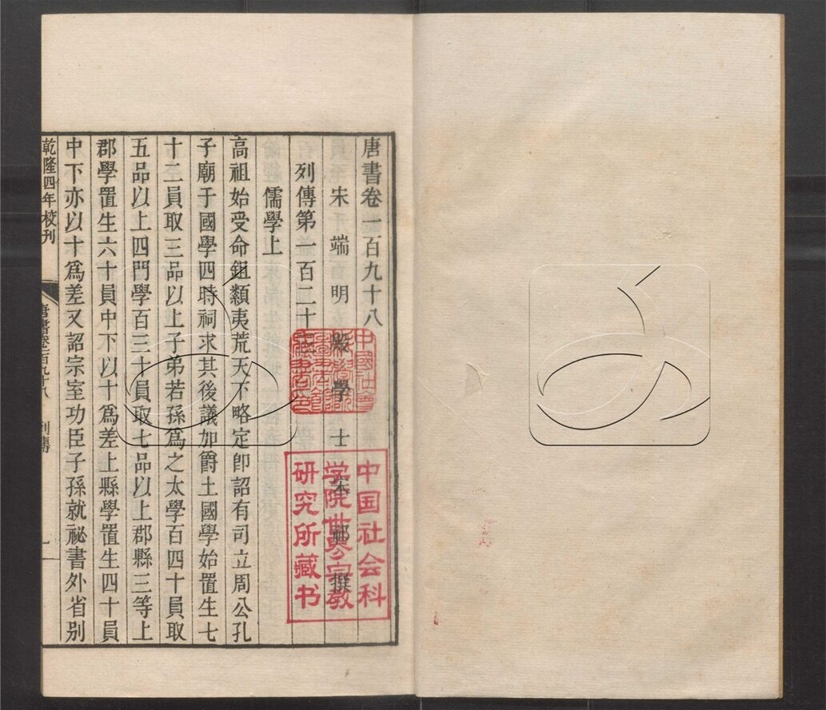 唐書卷一百九十八
宋端明殿學士宋祁撰
列傳第一百二十
儒學上
高祖始受命鉏類夷荒天下略定卽詔有司立周公孔
子廟于國學四時祠求其後議加爵土國學始置生七
十二員取三品以上子弟若孫爲之太學百四十員取
五品以上四門學百三十員取七品以上郡縣三等上
郡學置生六十員中下以十爲差上縣學置生四十員
中下亦以十爲差又詔宗室功臣子孫就祕書外省別
乾隆四年校刊
唐書卷一百九十八 列傳 一
中国社会科
学院世界宗教
研究所藏书